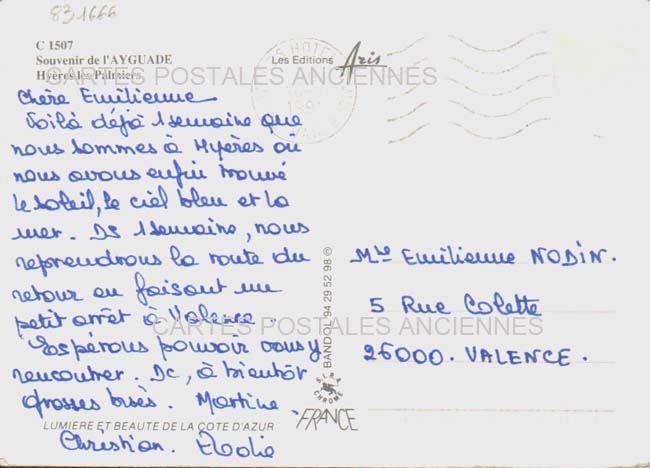 831666
C 1507
Souvenir de l'AYGUADE
Hyères les Palmiers
Les Editions Aris
CARTES POSTALES ANCIENNES
Chère Emilienne
Voilà déjà 1 semaine que
nous sommes à Hyères où
nous avons enfin trouvé
le soleil, le ciel bleu et la
mer. Ds 1 semaine, nous
reprendrons la route du
retour en faisant un
petit arrêt à Valence.
Espérons pouvoir vous y
rencontrer. Dc, à bientôt
Grosses bises. Martine.
Christian. Elodie
LUMIERE ET BEAUTE DE LA COTE D'AZUR
BANDOL 94 29 52 98 ©
FRANCE
Mle Emilienne NODIN.
5 Rue Colette
26000. VALENCE.
CARTES POSTALES ANCIENNES